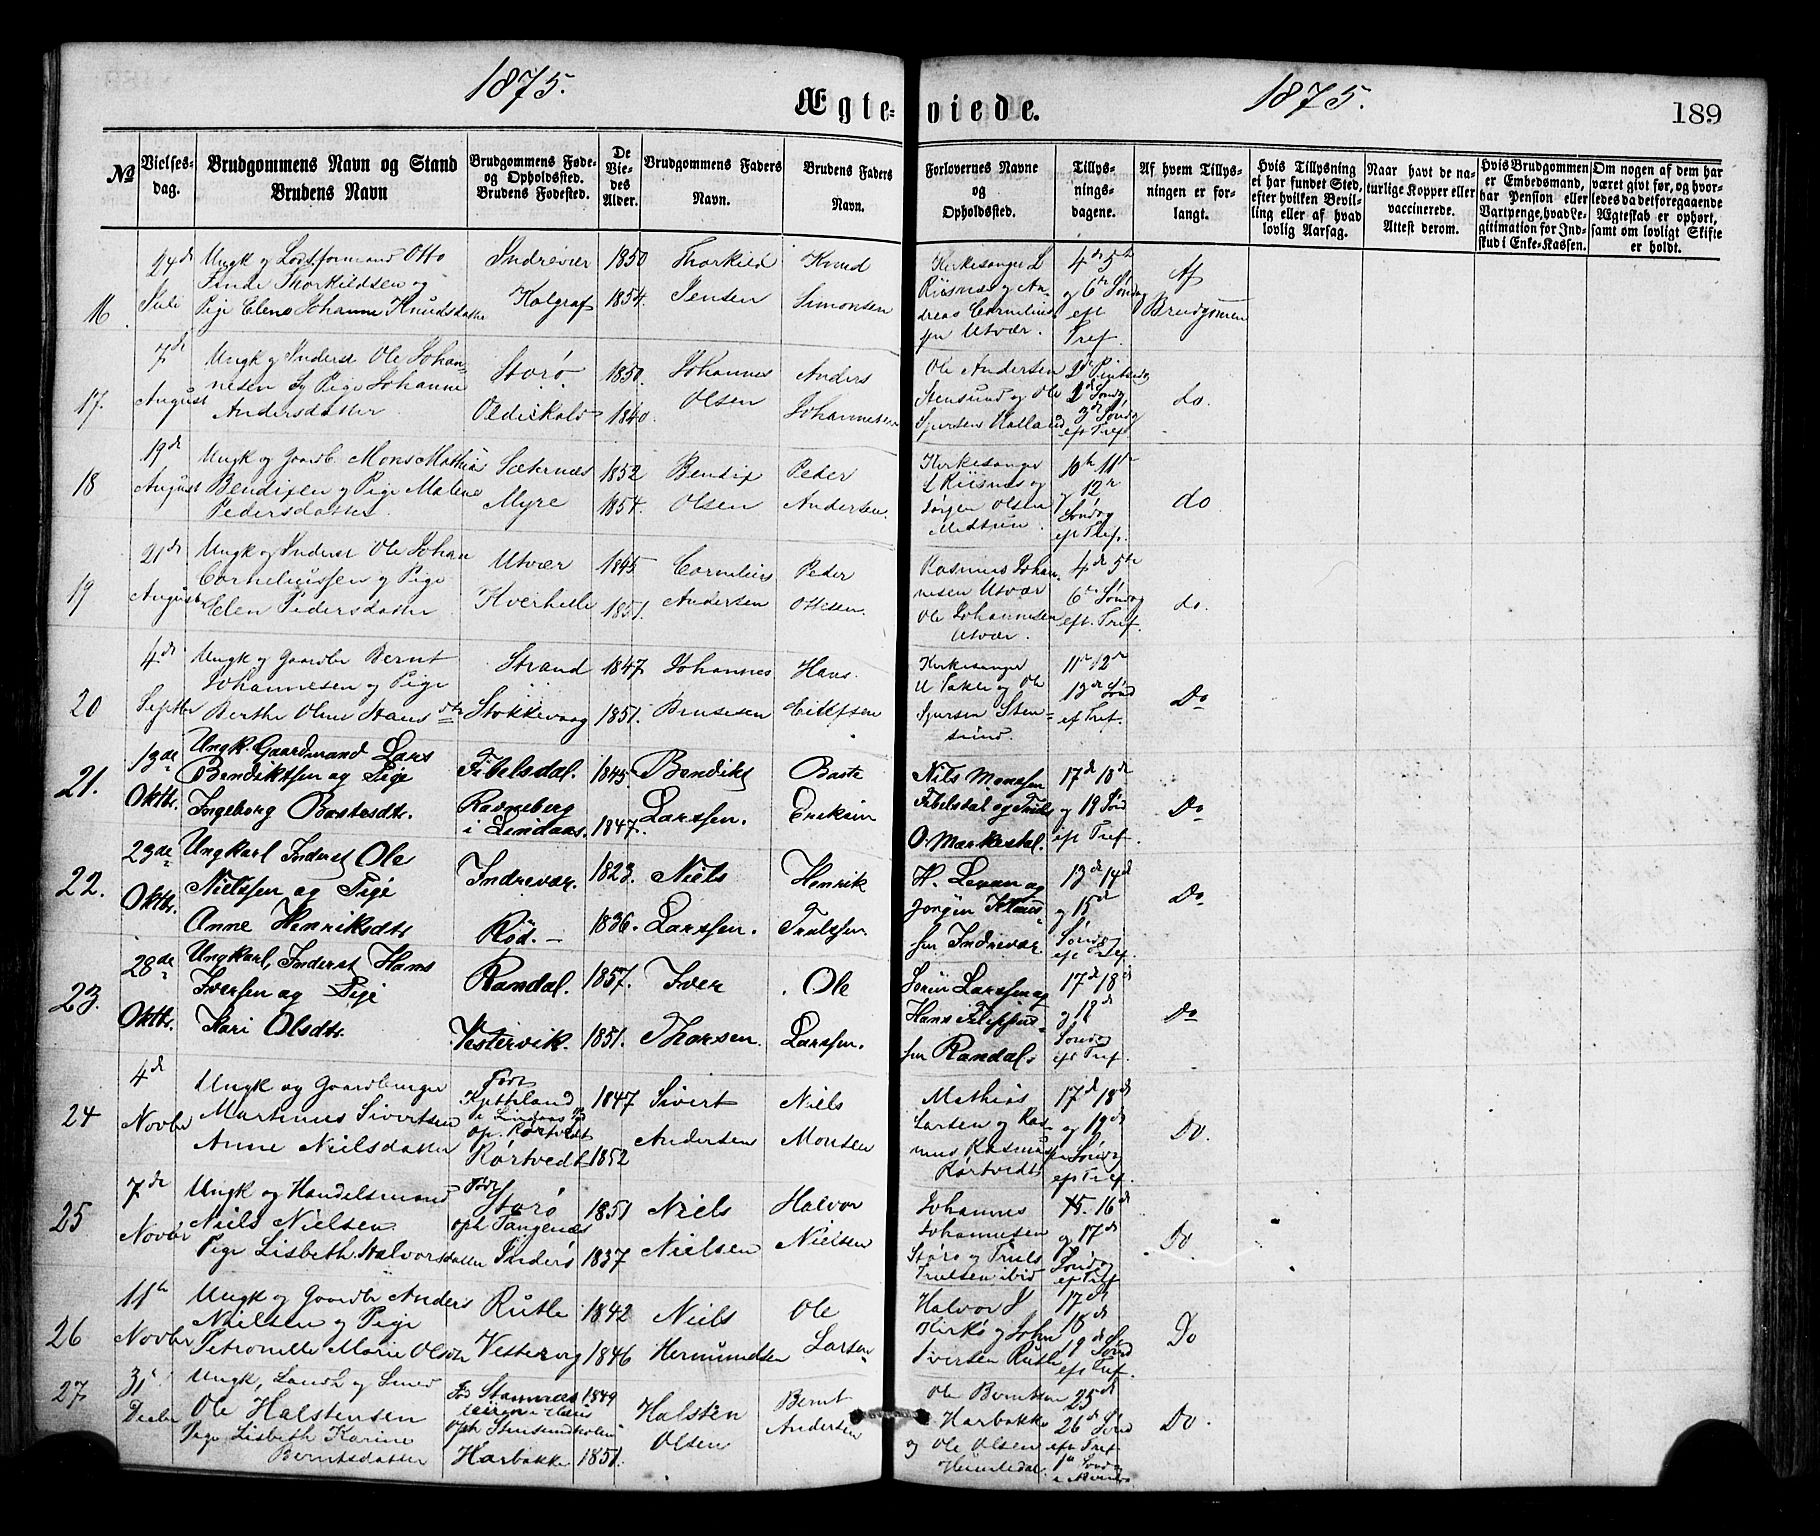 1875.
Ægte-
viede.
1875.
189
No
Vielses-
dag.
Brudgommens Navn og Stand
Brudens Navn
Brudgommens Føde-
og Opholdsted.
Brudens Fødested.
De
Vie-
des
Alder.
Brudgommens Faders
Navn.
Brudens Faders
Navn.
Forlovernes Navne
og
Opholdsted.
Tillys-
nings-
dagene.
Af hvem Tillys-
ningen er for-
langt.
Hvis Tillysning
ei har fundet Sted,
efter hvilken Bevil-
ling eller af hvad
lovlig Aarsag.
Naar havt de na-
turlige Kopper eller
vaccinerede.
Attest derom.
Hvis Brudgommen
er Embedsmand,
har Pension eller
Vartpenge, hvad Le-
gitimation for Ind-
skud i Enke-Kassen.
Om nogen af dem har
været givt før, og hvor-
ledes da det foregaaende
Ægteskab er ophørt,
samt om lovligt Skifte
er holdt.
16
24de
Juli
Ungk og Lodsformand Otto
Thorkildsen og
Pige Elene Johanne Knudsdatter
Indrevær
Kolgraf
1850
1854.
Thorkild
Jensen
Knud
Simonsen
Kirkesanger L
Riisnes og An-
dreas Cornelius-
sen Utvær.
4de 5te
og 6te Søndag
eft
Tref.
Af
Brudgommen
17.
7de
August
Ungk og Inderst Ole Johan-
nesen og Pige Johanne
Andersdatter
Storø
Oldeskald
1850.
1840.
Johannes
Olsen
Anders
Johannesen
Ole Andersen
Stensund og Ole
Sjursen Halland
2de Søndag
3de Sønd
eft Tref
do.
18
19de
August
Ungk og Gaardb. Mons Mathias
Bendixen og Pige Malene
Pedersdatter.
Sæternæs
Myre
1852
1854.
Bendix
Olsen
Peder
Andersen.
Kirkesanger
L Riisnæs og
Jørgen Olsen
Midtun.
10de 11te
og 12te
Søndag
eft Tref.
do
19
21de
August
Ungk og Inderst Ole Johan
Corneliussen og Pige
Elen Pedersdatter
Utvær
Kverhelle
1845.
1851.
Cornelius
Andersen
Peder
Ottesen.
Rasmus Johan-
nesen Utvær
Ole Johannesen
Utvær.
4de 5te
6te Søndag
eft. Tref.
do.
20
4de
Septbr
Ungk og Gaardbr Bernt
Johannesen og Pige
Berthe Oline Hansdtr
Strand
Stokkevaag
1847.
1851.
Johannes
Bensesen
Hans
Eilifsen
Kirkesanger
og Ole
Sjursen Sten-
sund.
11te 12te
13de Sønd
ef Tref.
Do
21.
13de
Oktbr.
Ungk. Gaardmand Lars
Bendiktsen og Pige
Ingeborg Bastesdtr.
Fibelsdal.
Ravneberg
i Lindaas.
1845.
1847.
Bendikt
Larssen.
Baste
Eriksen
Nils Monssen
Fibelsdal og Truls
O. Markestad.
17de 18de
og 19 Sønd
eft Tref.
Do
22.
23de
Oktbr.
Ungkarl Inderst Ole
Nielssen og Pige
Anne Henriksdtr
Indrevær.
Rød.—
1823.
1836.
Niels
Larssen.
Henrik
Trulssen.
H. Levan og
Jørgen Klaus-
sen Indrevær
13de 14de
og 15de
Søndag
eft Tref.
Do
23.
28de
Oktbr.
Ungkarl, Inderst Hans
Iversen og Pige
Kari Olsdtr.
Randal.
Vestervik.
1857.
1851.
Iver
Thorsen.
Ole
Larssen.
Sørin Larssen og
Hans Filippus-
sen Randal.
17de 18de
og 18de
Søndag
eft Tref.
Do
24
4de
Novbr
Ungk og Gaardbruger
Martinus Sivertsen
Anne Nielsdatter
Født
i Lindaas
op. Rørtvedt
Rørtvedt
1847
1852
Sivert
Andersen
Niels
Monsen
Mathias
Larsen og Ras-
mus Rasmussen
Rørtvedt
17de 18de
og 19de
Søndag
eft Tref.
Do.
25
7de
Novbr
Ungk og Handelsmand
Niels Nielsen
Pige Lisbeth Halvorsdatter
Født
Storø
oph Tangenæs
Inderø
1851
1837
Niels
Nielsen
Halvor
Nielsen
Johannes
Johannesen
Storø og Truls
Trulsen ibid
15. 16de
og 17de
Søndag
ef Tref
Do
26
11te
Novbr
Ungk og Gaardbr Anders
Nielsen og Pige
Petronelle Marie Olsdtr
Rutle
Vestervig
1842
1846
Niels
Hermundsen
Ole
Larsen
Halvor J
Kirkø og John
Iversen Rutle
17de
18de
19de Sønd
eft Tref.
Do
27
31te
Decbr
Ungk, Landh og Smed
Ole Halstensen
Pige Lisbeth Karine
Berntsdatter
Fød Stamnæs
oph Stensundholm
Harbakke
1849
1851.
Halsten
Olsen
Bernt
Andersen
Ole Berntsen
Harbakke
og Ole Olsen
Humledal.
25de
26de Sønd
eft Tref
1ste Søndag
i Advent
Do.